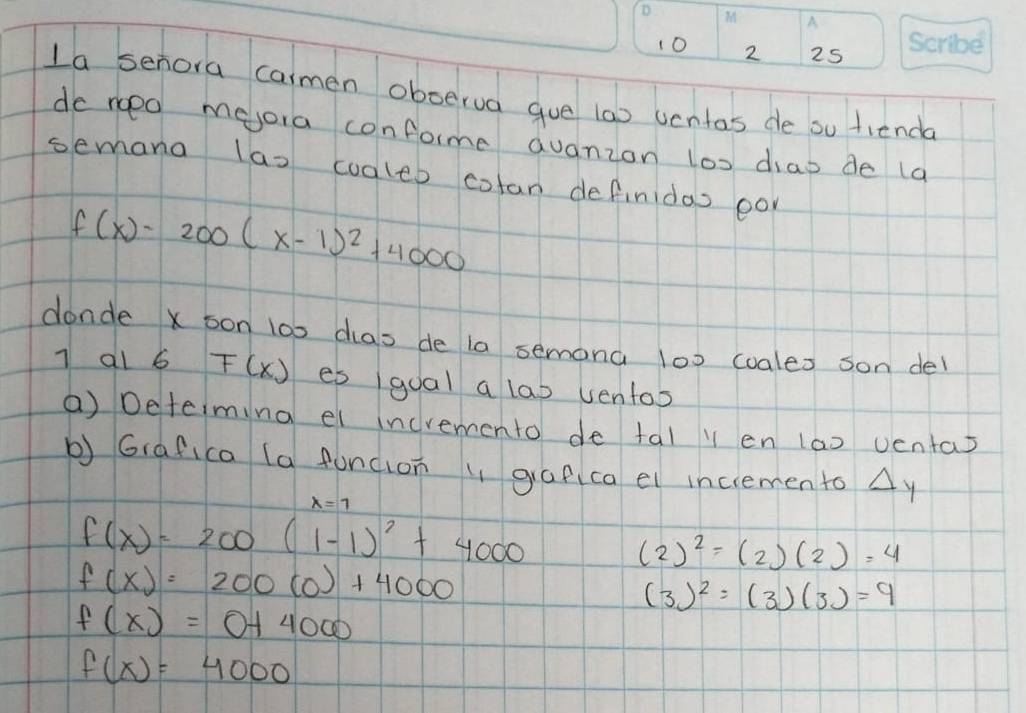 D M A
10 2 25
Scribe
La señora carmen observa que las ventas de su tienda
de ropa mejora conforme avanzan los dias de la
semana las cuales estan definidas por
f(x)= 200 ( x-1)² +4000
donde x son los dias de la semana los cuales son del
1 al 6 F(x) es igual a las ventas
a) Determina el incremento de tal y en las ventas
b) Grafica la funcion y grafica el incremento Δy
x=1
f(x)= 200 (1-1)² + 4000
f(x)= 200 (0) +4000
f(x) = 0+ 4000
f(x)= 4000
(2)² = (2)(2) = 4
(3)² = (3)(3) = 9